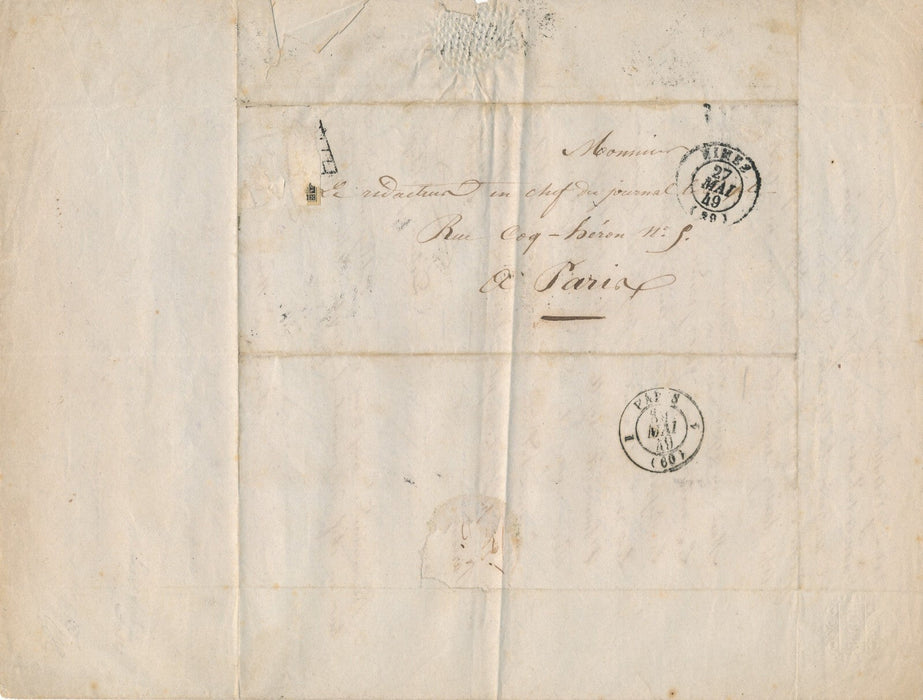 Monsieur
Le rédacteur en chef du journal le
Rue Coq-héron N° 5.
à Paris
NIMES
27
MAI
49
(29)
PARIS
MAI
49
(60)